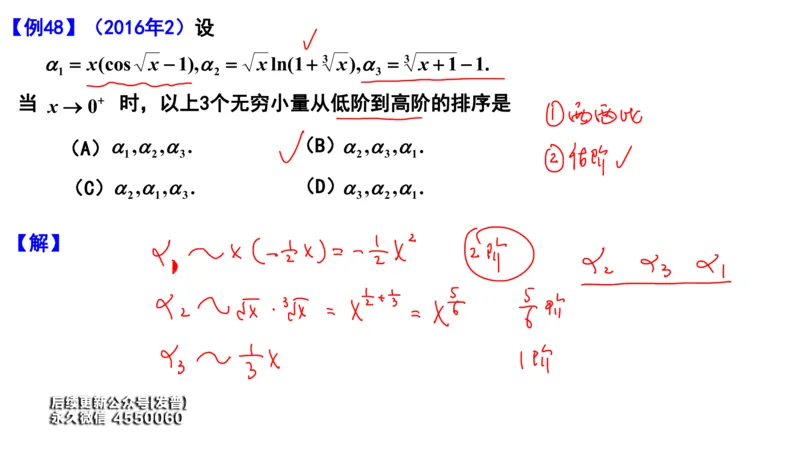 【例48】（2016年2）设
α₁ = x(cos √x − 1), α₂ = √x ln(1 + ∛x), α₃ = ∛x+1 − 1.
当 x → 0⁺ 时，以上3个无穷小量从低阶到高阶的排序是
① 两两比
(A) α₁, α₂, α₃. (B) α₂, α₃, α₁.
② 估阶 ✓
(C) α₂, α₁, α₃. (D) α₃, α₂, α₁.
【解】
α₁ ~ x(−½x) = −½x² 2阶
α₂ α₃ α₁
α₂ ~ √x · ∛x = x^(1/2 + 1/3) = x^(5/6) 5/6 阶
α₃ ~ 1/3 x 1阶
后续更新公众号[发普]
永久微信 4550060